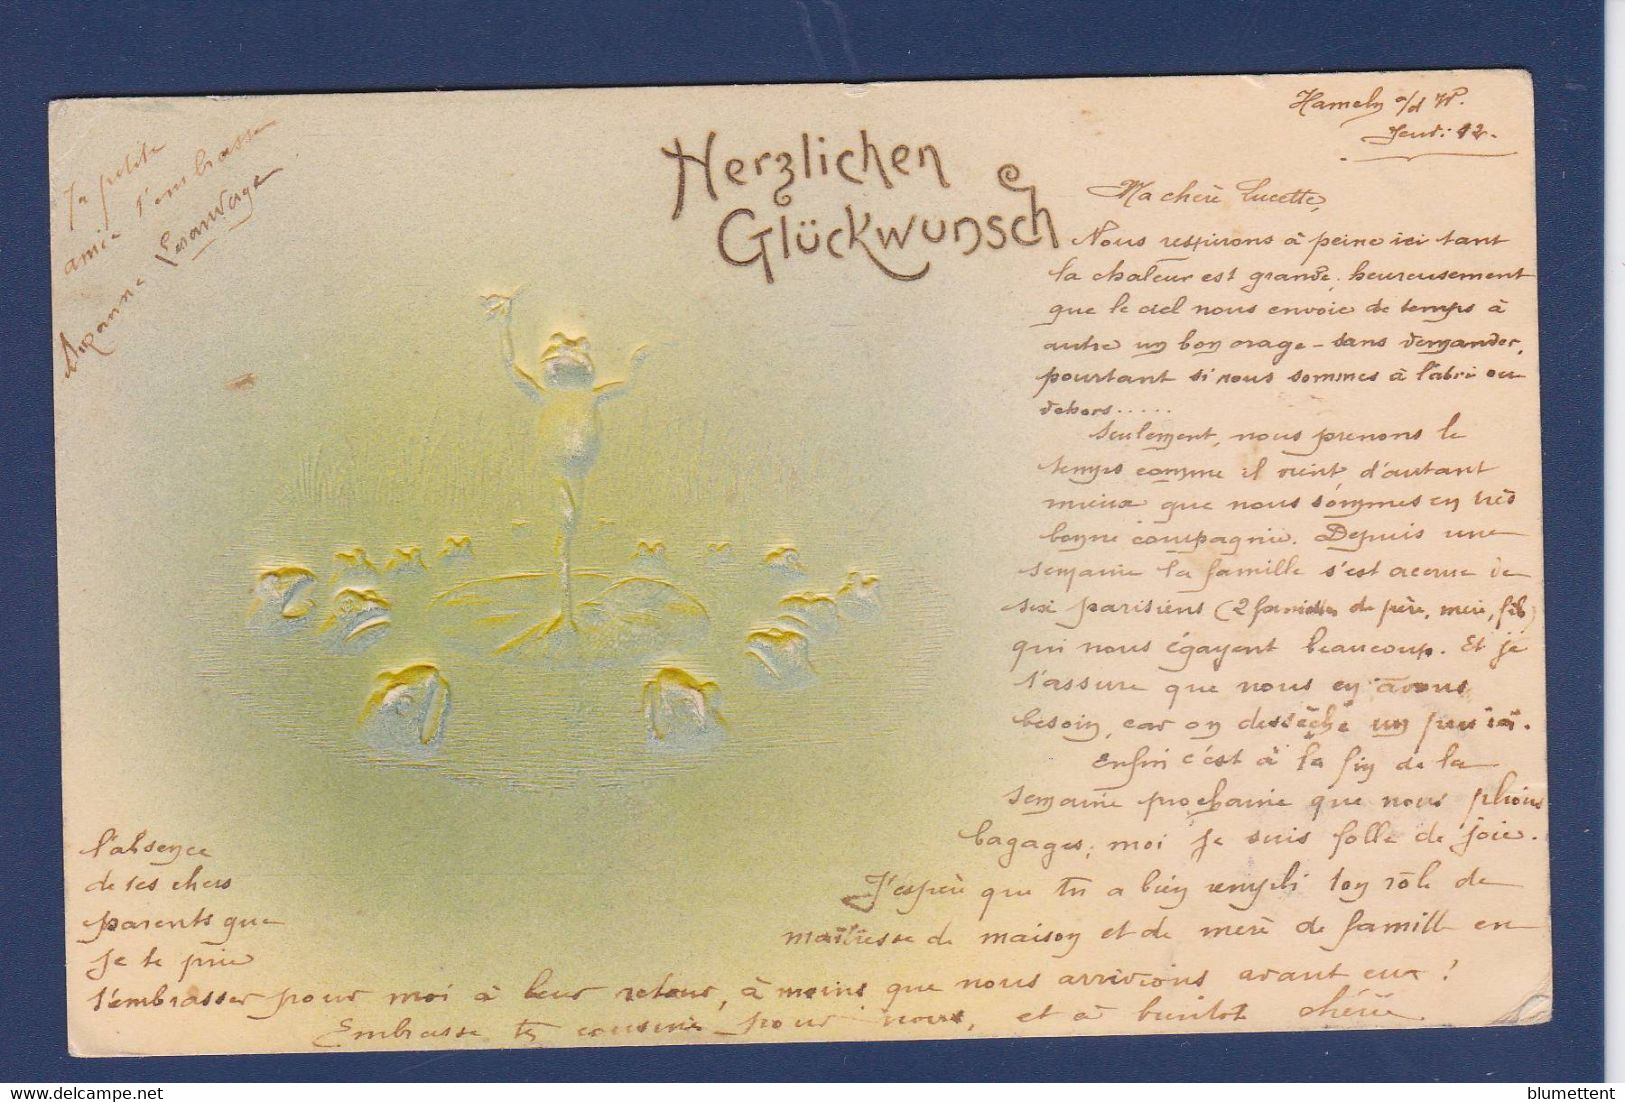 Herzlichen
Glückwunsch
Hameln a/d W.
Jeudi 12.
Ma chère Lucette,
Nous respirons à peine ici tant
la chaleur est grande, heureusement
que le ciel nous envoie de temps à
autre un bon orage - sans demander,
pourtant si nous sommes à l'abri ou
dehors.....
Seulement, nous prenons le
temps comme il vient d'autant
mieux que nous sommes en très
bonne compagnie. Depuis une
semaine la famille s'est accrue de
six parisiens (2 familles de père, mère, fils)
qui nous égayent beaucoup. Et je
t'assure que nous en avons
besoin, car on dessèche un peu ici.
Enfin c'est à la fin de la
semaine prochaine que nous plions
bagages; moi je suis folle de joie.
J'espère que tu a bien rempli ton rôle de
maîtresse de maison et de mère de famille en
l'absence
de tes chers
parents que
je te prie
d'embrasser pour moi à leur retour, à moins que nous arrivions avant eux!
Embrasse ta cousine pour nous, et à bientôt chérie.
Ta petite
amie t'embrasse
Suzanne
blumettent